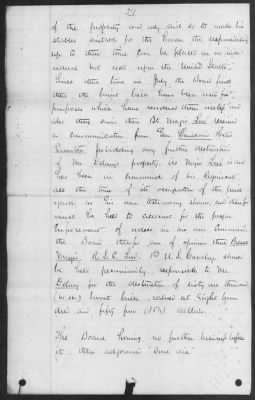 of the property and only did so to make his
stables suitable for the purpose the responsibility
up to that time can be placed on no indi-
vidual but rest upon the United States.
Since that time in July the Board find
that the burnt brick have been used for
purposes which have rendered them useless and
also that since then Bt. Major received
a communication from Gen Head
Quarters forbidding any further destruction
of Mr Delany's property. As Major is and
has been in command of his Regiment
all the time of its occupation of the brick
yard as his own testimony shows, and therefore
must be held to account for the proper
enforcement of orders in his own command,
the Board therefore are of opinion that Brevet
Major 1st U.S. Cavalry, should
be held pecuniarily responsible to Mr.
Delany for the destruction of sixty one thousand
(61.000) burnt brick valued at Eight hun-
dred and fifty four (854) dollars.
The Board having no further business before
it then adjourned sine die